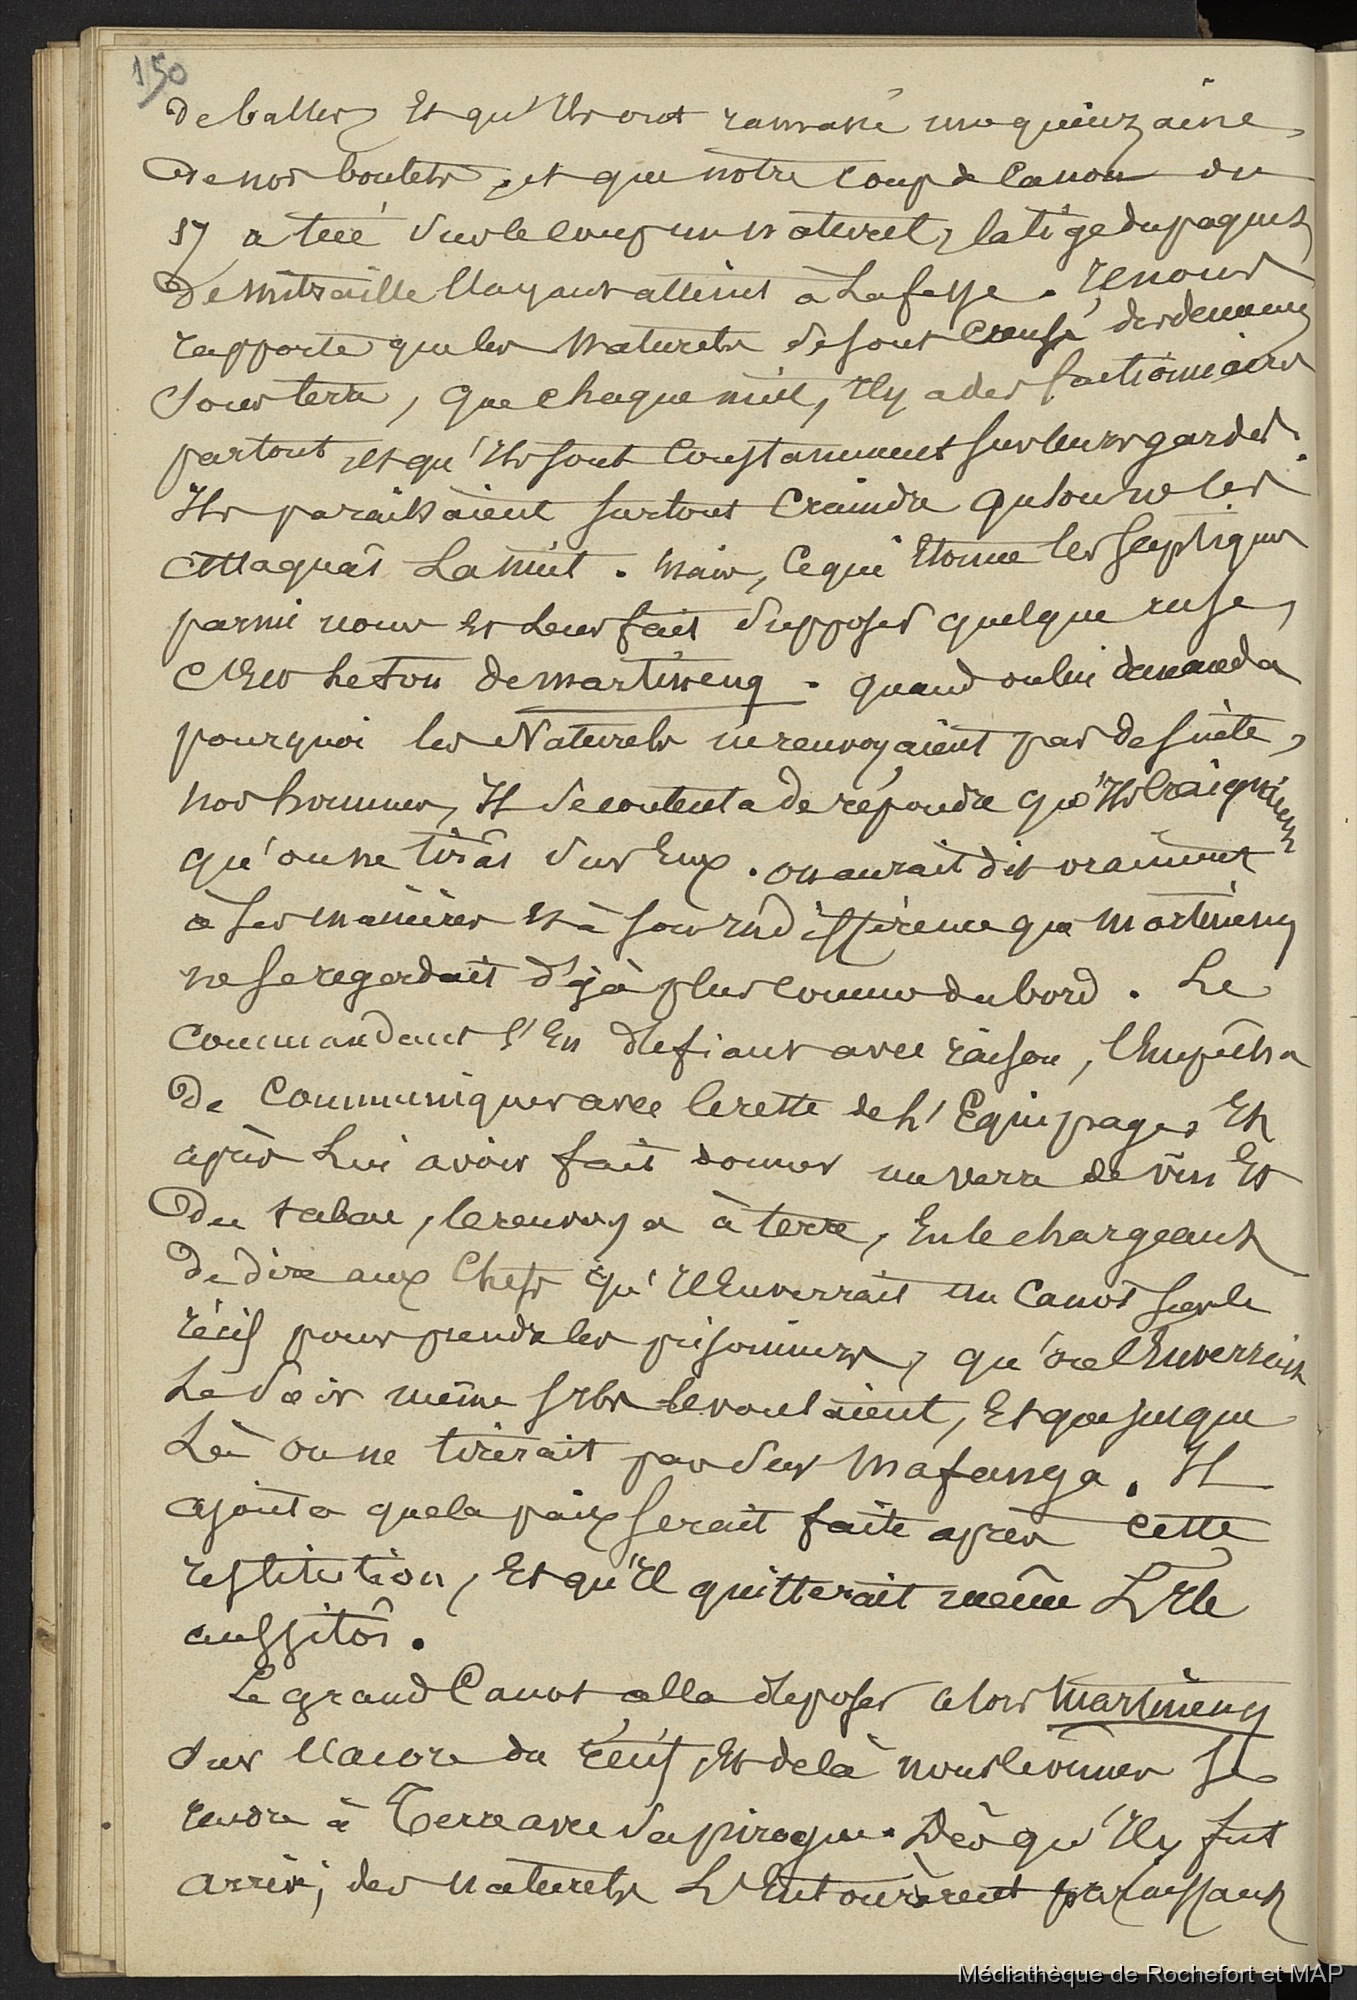 150
de balles, Et qu'Ils ont ramassé une quinzaine
de nos boulets, et que notre coup de Canon du
17 a tué sur le coup un naturel, la tige du paquet
de mitraille l'ayant atteint à La fesse. Il nous
rapporte que les Naturels se sont Creusé des demeures
Sous terre, que chaque nuit, Il y a des factionnaires
partout et qu'Ils sont Constamment sur leurs gardes.
Ils paraissaient surtout Craindre qu'on ne les
attaquât La nuit. Mais, Ce qui Etonne les sceptiques
parmi nous et Leur fait Supposer quelque ruse,
c'Est Le ton de Martineng. quand on lui demanda
pourquoi les Naturels ne renvoyaient pas de suite,
nos hommes, Il se contenta de répondre qu'Ils Craignaient
qu'on ne tirât sur Eux. on aurait dit vraiment
à ses manières Et à son Indifférence que Martineng
ne se regardait déjà plus comme du bord. Le
Commandant s'En défiant avec raison, l'Empêcha
de Communiquer avec le reste de L'Equipage, Et
après Lui avoir fait donner un verre de vin Et
du tabac, le renvoya à terre, En le chargeant
de dire aux Chefs qu'Il Enverrait un Canot sur le
récif pour prendre les prisonniers, qu'Il l'Enverrait
Le Soir même s'Ils le voulaient, Et que jusque
Là on ne tirerait pas sur Mafanga. Il
ajouta que la paix serait faite après cette
restitution, Et qu'Il quitterait même L'Ile
aussitôt.
Le grand Canot alla déposer alors Martineng
Sur l'acore du récif, Et de là nous le vîmes se
rendre à Terre avec sa pirogue. Dès qu'Il y fut
arrivé, des naturels L'Entourèrent paraissant
Médiathèque de Rochefort et MAP